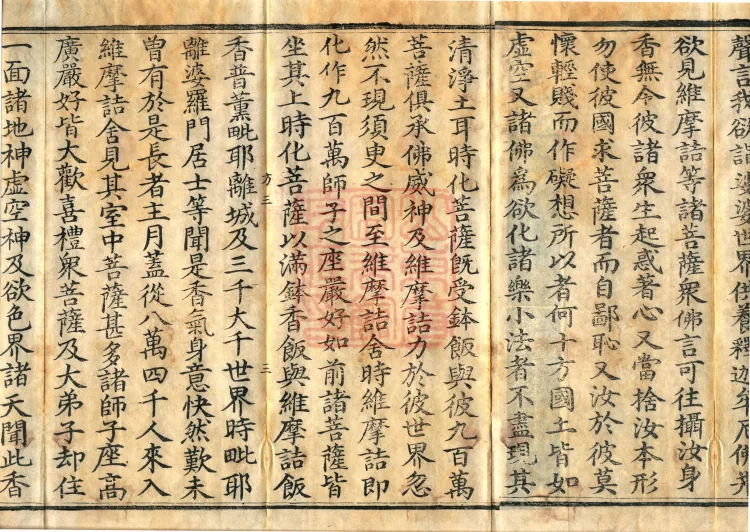 聲言我欲詣娑婆世界供養釋迦牟尼佛并
欲見維摩詰等諸菩薩衆佛言可往攝汝身
香無令彼諸衆生起惑著心又當捨汝本形
勿使彼國求菩薩者而自鄙恥又汝於彼莫
懷輕賤而作礙想所以者何十方國土皆如
虛空又諸佛爲欲化諸樂小法者不盡現其
清淨土耳時化菩薩既受鉢飯與彼九百萬
菩薩俱承佛威神及維摩詰力於彼世界忽
然不現須臾之間至維摩詰舍時維摩詰即
化作九百萬師子之座嚴好如前諸菩薩皆
坐其上時化菩薩以滿鉢香飯與維摩詰飯
方三
三
香普薰毗耶離城及三千大千世界時毗耶
離婆羅門居士等聞是香氣身意快然歎未
曾有於是長者主月蓋從八萬四千人來入
維摩詰舍見其室中菩薩甚多諸師子座高
廣嚴好皆大歡喜禮衆菩薩及大弟子却住
一面諸地神虛空神及欲色界諸天聞此香